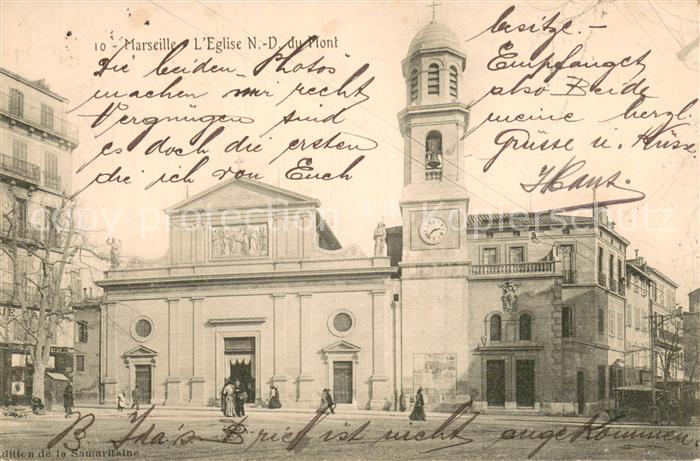 10 - Marseille - L'Eglise N.-D. du Mont
Die beiden Photos
machen mir recht
Vergnügen sind
es doch die ersten
die ich von Euch
besitze. -
Empfanget
also Beide
meine herzl.
Grüsse u. Küsse
Hans
B. Ida's Brief ist nicht angekommen.
Edition de la Samaritaine
copyright pkpercheurs.de